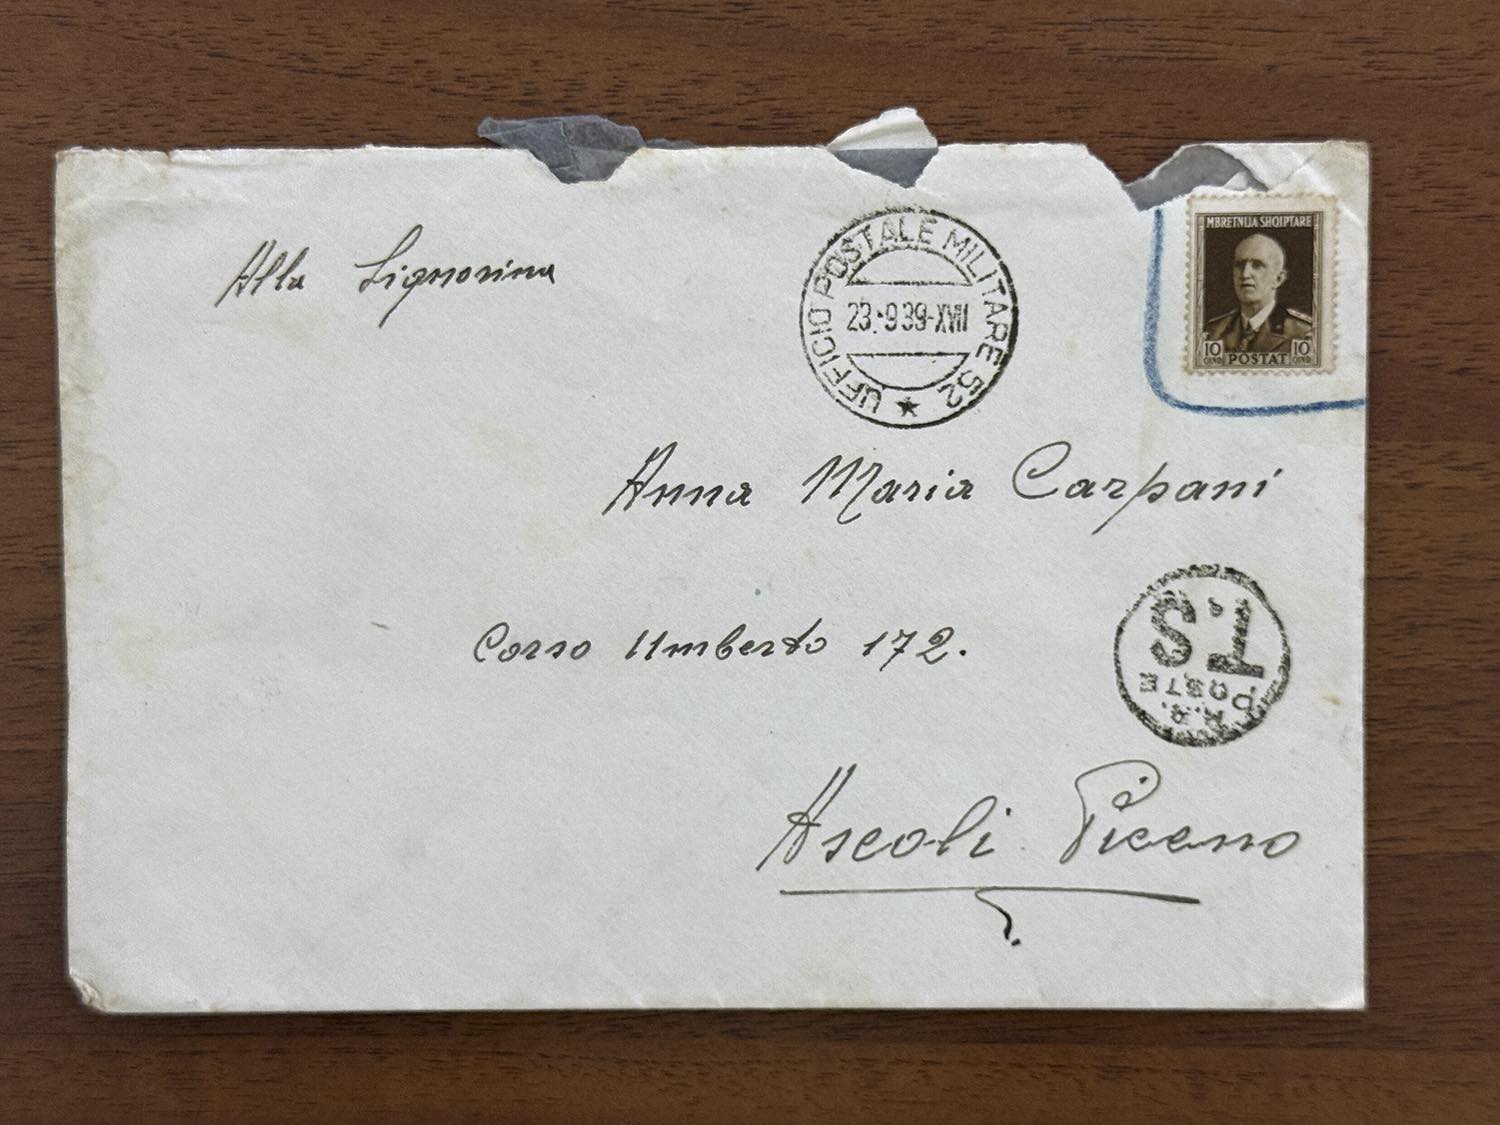 MBRETNIJA SHQIPTARE
10 QIND POSTAT 10 QIND
UFFICIO POSTALE MILITARE 52
23.·9 39-XVII
Alla Signorina
Anna Maria Carpani
T.S
Corso Umberto 172.
Ascoli Piceno